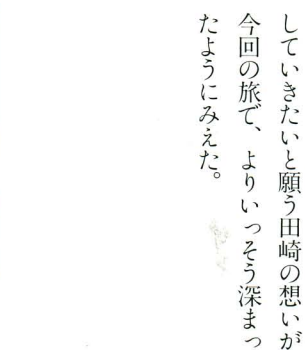 していきたいと願う田崎の想いが
今回の旅で、よりいっそう深まっ
たようにみえた。